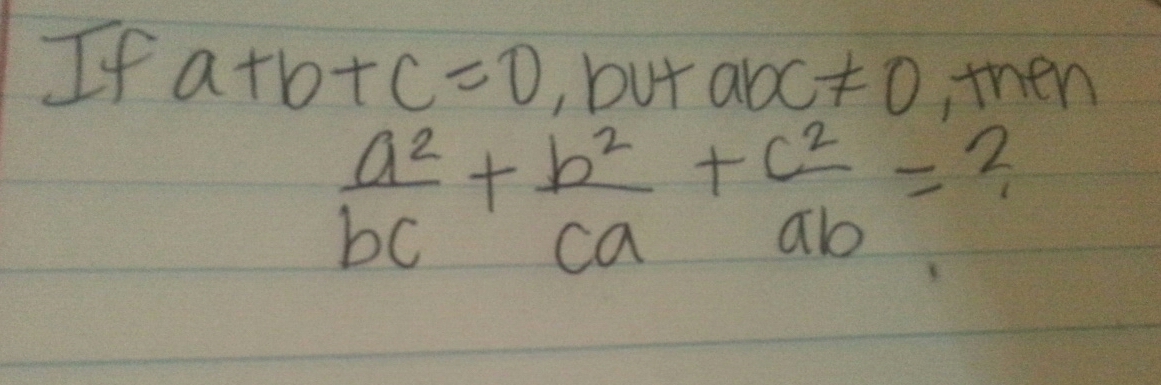 If a+b+c=0, but abc≠0, then
a²/bc + b²/ca + c²/ab = ?